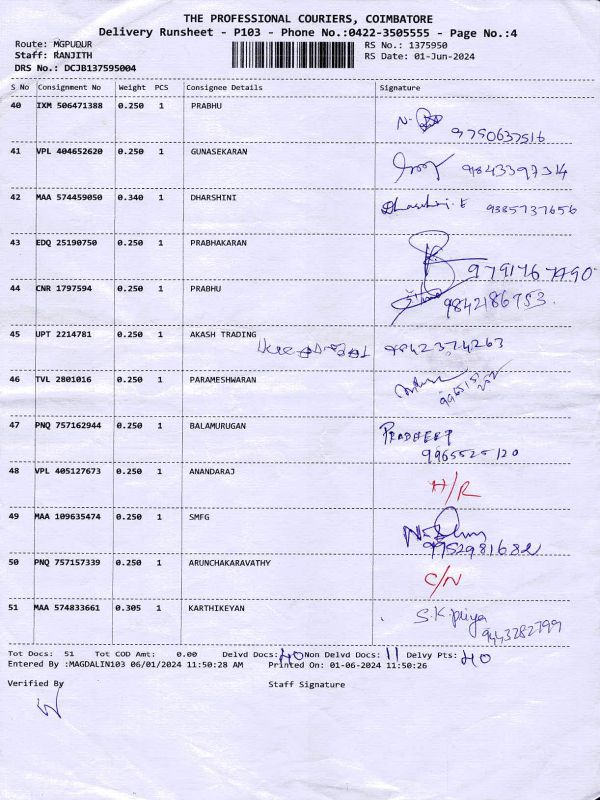 THE PROFESSIONAL COURIERS, COIMBATORE
Delivery Runsheet - P103 - Phone No.:0422-3505555 - Page No.:4
Route: MGPUDUR RS No.: 1375950
Staff: RANJITH RS Date: 01-Jun-2024
DRS No.: DCJB137595004
S No Consignment No Weight PCS Consignee Details Signature
40 IXM 506471388 0.250 1 PRABHU
9790637516
41 VPL 404652620 0.250 1 GUNASEKARAN
9843397314
42 MAA 574459050 0.340 1 DHARSHINI
Dharshini.E 9385737656
43 EDQ 25190750 0.250 1 PRABHAKARAN
9791767790
44 CNR 1797594 0.250 1 PRABHU
9842186753
45 UPT 2214781 0.250 1 AKASH TRADING
9842374263
46 TVL 2801016 0.250 1 PARAMESHWARAN
47 PNQ 757162944 0.250 1 BALAMURUGAN
PRADHEEP
9965525120
48 VPL 405127673 0.250 1 ANANDARAJ
H/R
49 MAA 109635474 0.250 1 SMFG
9952981682
50 PNQ 757157339 0.250 1 ARUNCHAKARAVATHY
C/N
51 MAA 574833661 0.305 1 KARTHIKEYAN
S.K.priya
9443282799
Tot Docs: 51 Tot COD Amt: 0.00 Delvd Docs: 40 Non Delvd Docs: 11 Delvy Pts: 40
Entered By :MAGDALIN103 06/01/2024 11:50:28 AM Printed On: 01-06-2024 11:50:26
Verified By Staff Signature